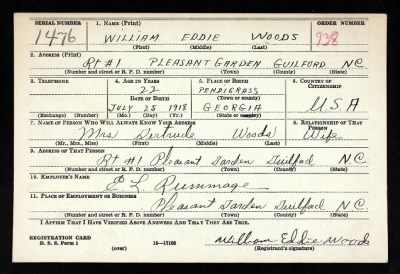 SERIAL NUMBER 1. NAME (Print) ORDER NUMBER
1476 WILLIAM EDDIE WOODS 938
(First) (Middle) (Last)
2. ADDRESS (Print)
Rt #1 PLEASANT GARDEN GUILFORD N.C.
(Number and street or R. F. D. number) (Town) (County) (State)
3. TELEPHONE 4. AGE IN YEARS 5. PLACE OF BIRTH 6. COUNTRY OF CITIZENSHIP
22 PENDIGRASS
DATE OF BIRTH (Town or county)
JULY 25 1918 GEORGIA U.S.A
(Exchange) (Number) (Mo.) (Day) (Yr.) (State or country)
7. NAME OF PERSON WHO WILL ALWAYS KNOW YOUR ADDRESS 8. RELATIONSHIP OF THAT PERSON
Mrs Gertrude Woods Wife
(Mr., Mrs., Miss) (First) (Middle) (Last)
9. ADDRESS OF THAT PERSON
Rt #1 Pleasant Garden Guilford N.C.
(Number and street or R. F. D. number) (Town) (County) (State)
10. EMPLOYER'S NAME
E. L. Rummage
11. PLACE OF EMPLOYMENT OR BUSINESS
Pleasant Garden Guilford N.C.
(Number and street or R. F. D. number) (Town) (County) (State)
I AFFIRM THAT I HAVE VERIFIED ABOVE ANSWERS AND THAT THEY ARE TRUE.
REGISTRATION CARD
D. S. S. Form 1 16—17105 William Eddie Woods
(over) (Registrant's signature)